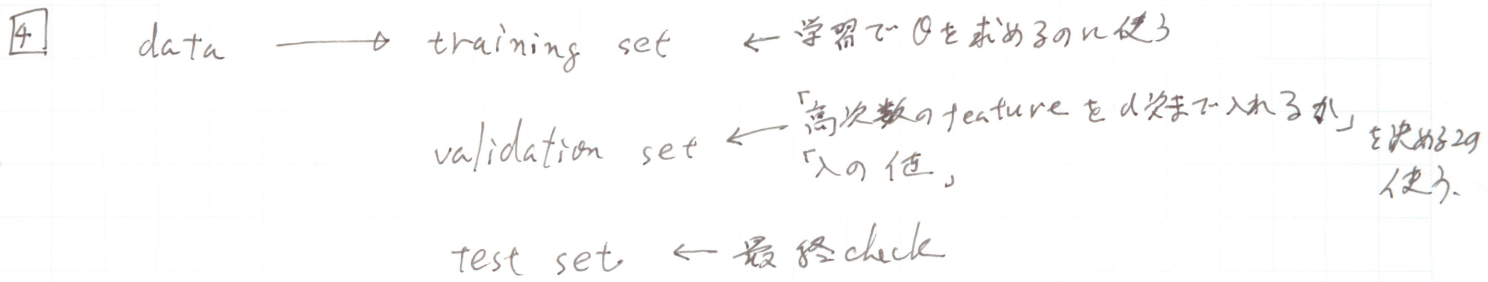 4 data → training set ← 学習で θ を求めるのに使う
validation set ← 「高次数の feature を d次まで入れるか」
「λの値」
を決める
使う.
test set ← 最終check